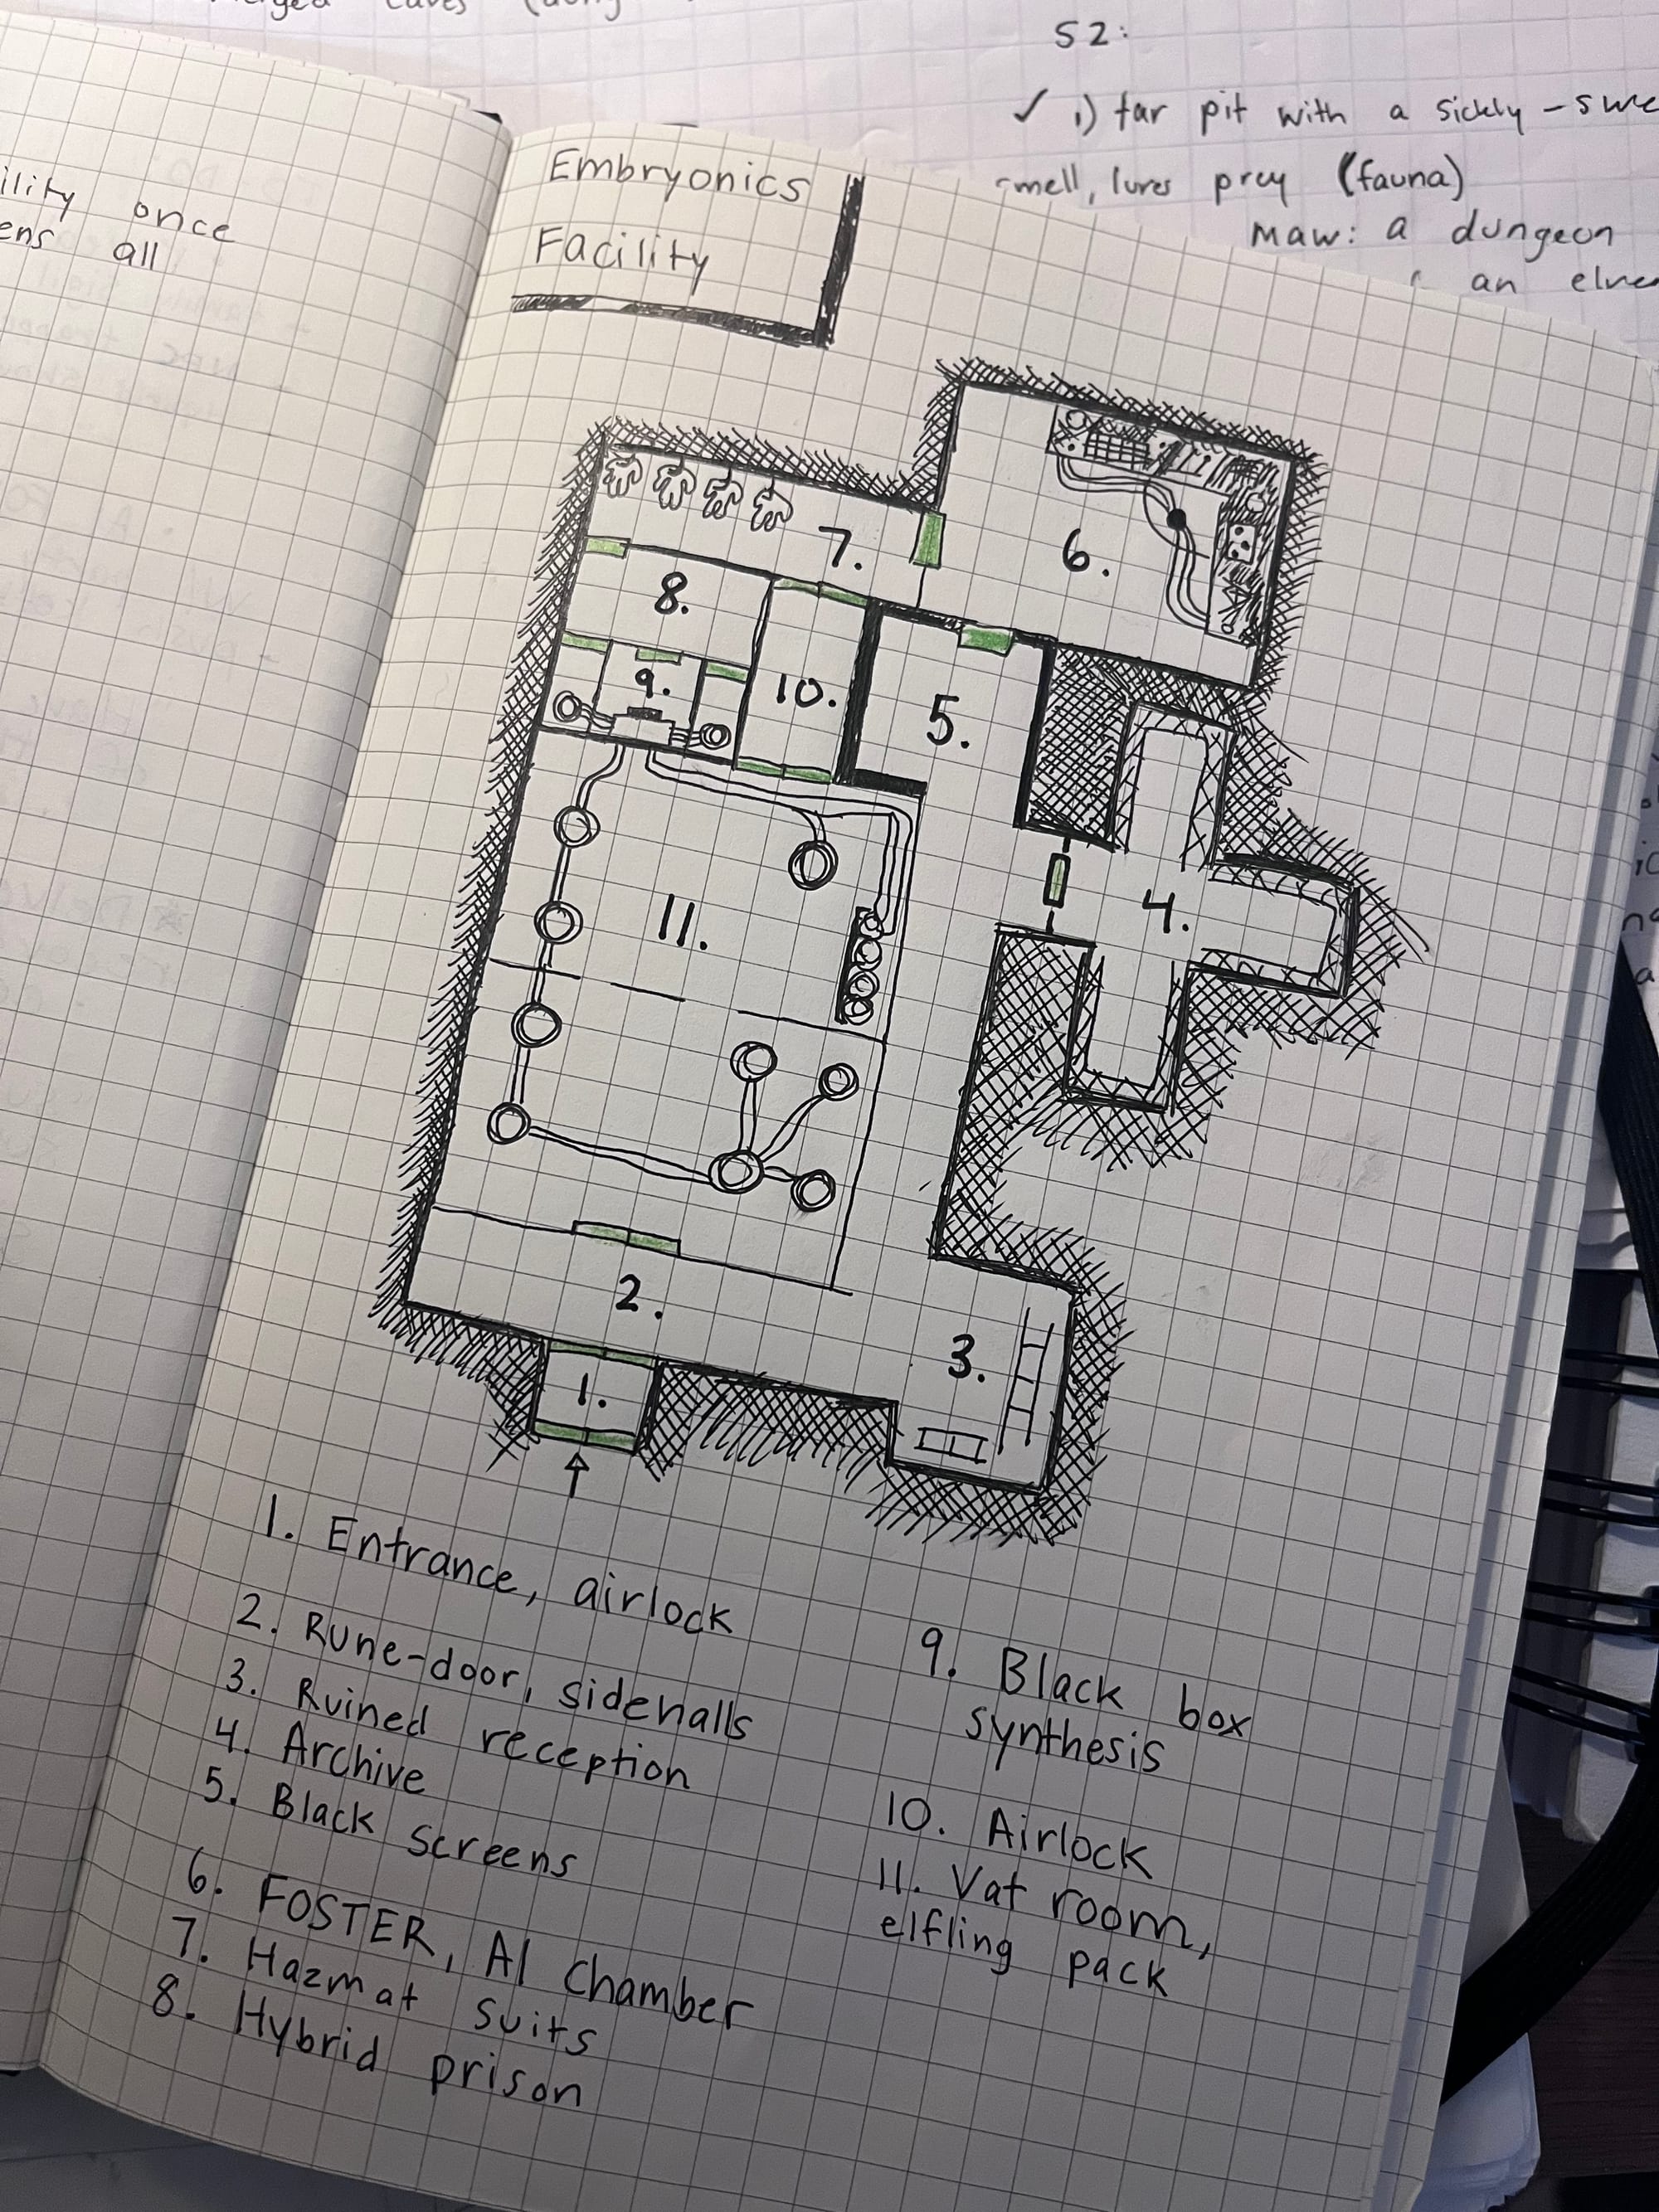 S2:
✓ 1) tar pit with a sickly-
smell, lures prey (fauna)
maw: a dungeon
an
once
all
Embryonics
Facility
7.
6.
8.
9.
10.
5.
11.
4.
2.
3.
1.
1. Entrance, airlock
2. Rune-door, sidehalls
3. Ruined reception
4. Archive
5. Black screens
6. FOSTER, AI Chamber
7. Hazmat suits
8. Hybrid prison
9. Black box
synthesis
10. Airlock
11. Vat room,
elfling pack